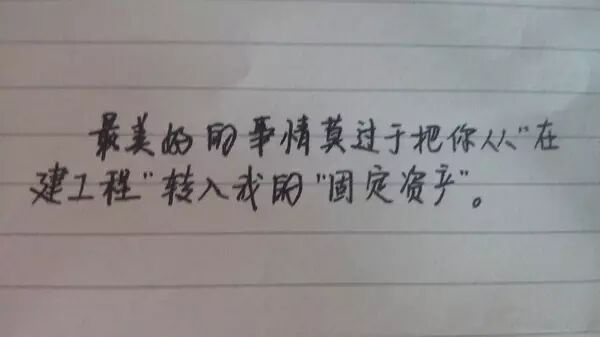 最美好的事情莫过于把你从“在
建工程”转入我的“固定资产”。